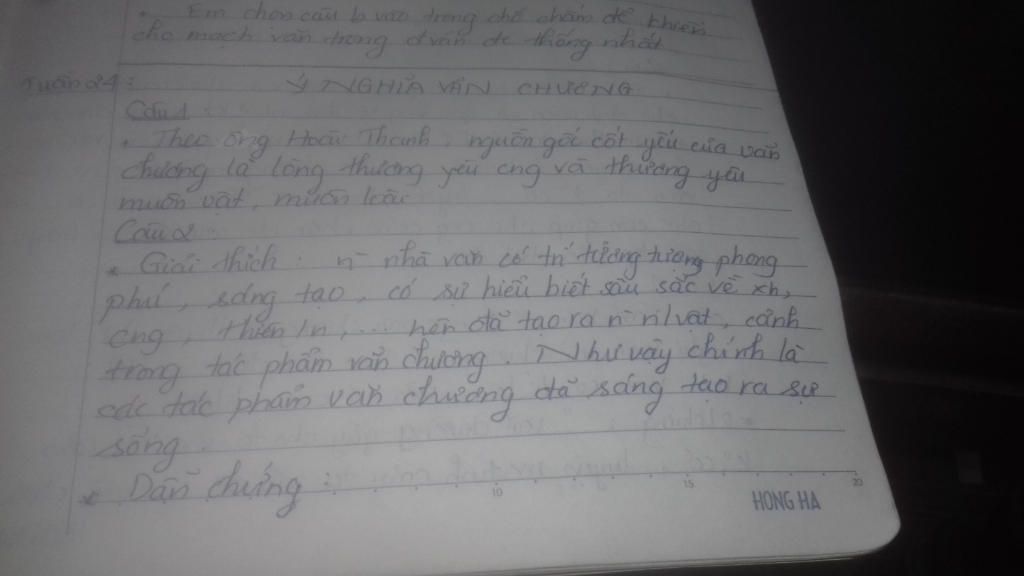 Em chọn câu b vào trong chỗ chấm để khiến
cho mạch văn trong đvăn đc thống nhất
Tuần 24:
Ý NGHĨA VĂN CHƯƠNG
Câu 1:
Theo ông Hoài Thanh, nguồn gốc cốt yếu của văn
chương là lòng thương yêu cng và thương yêu
muôn vật, muôn loài
Câu 2
* Giải thích: n~ nhà văn có trí tưởng tượng phong
phú, sáng tạo, có sự hiểu biết sâu sắc về xh,
cng, thiên/n,... nên đã tạo ra n~ n/vật, cảnh
trong tác phẩm văn chương. Như vậy chính là
các tác phẩm văn chương đã sáng tạo ra sự
sống.
* Dẫn chứng:
10 15 20
HONG HA